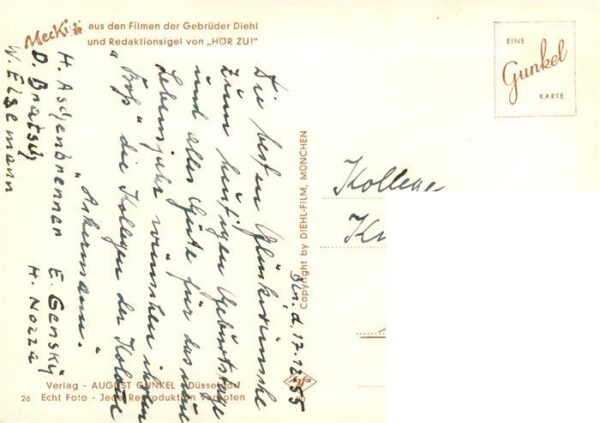 Mecki
aus den Filmen der Gebrüder Diehl
und Redaktionsigel von „HÖR ZU!"
EINE
Gunkel
KARTE
Bln. d. 17.12.55
Die besten Glückwünsche
zum heutigen Geburtstage
und alles Gute für das neue
Lebensjahr wünschen ihrem
„ die Kollegen der Kolonne
„Ackermann".
H. Aschenbrenner E. Gensky
D. Bratsch H. Nozza
W. Elsemann
Copyright by DIEHL-FILM, MÜNCHEN
Kollege
Agfa
Verlag - AUGUST GUNKEL - Düsseldorf
26 Echt Foto - Jede Reproduktion verboten